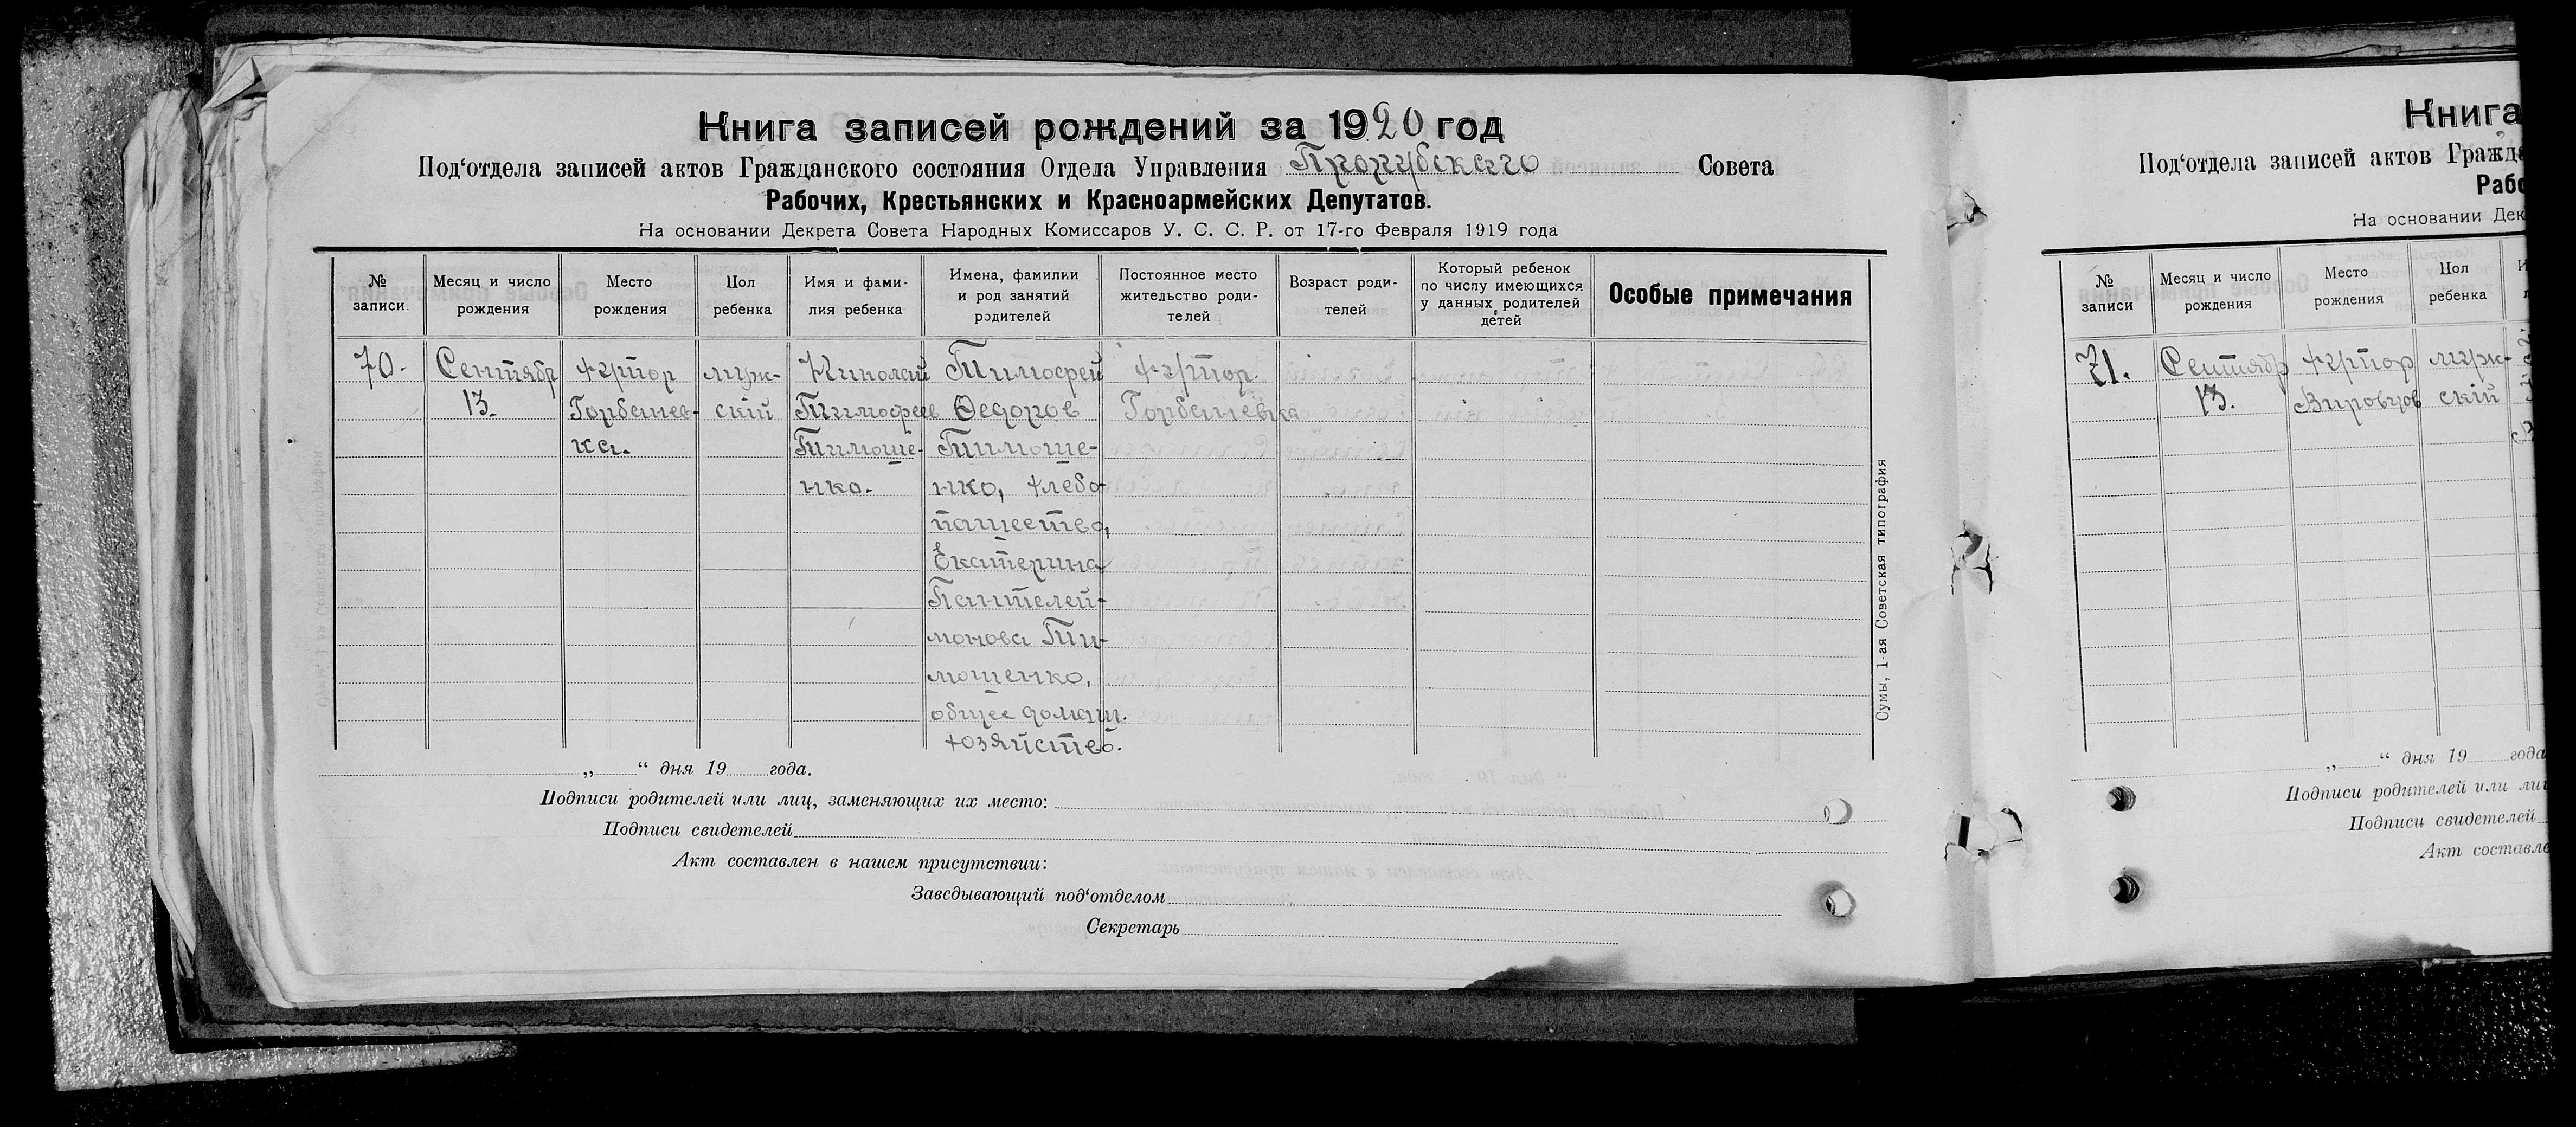 Книга записей рождений за 1920 год
Под‘отдела записей актов Гражданского состояния Отдела Управления Прорубского Совета
Рабочих, Крестьянских и Красноармейских Депутатов.
На основании Декрета Совета Народных Комиссаров У. С. С. Р. от 17-го Февраля 1919 года
№ записи.
Месяц и число рождения
Место рождения
Пол ребенка
Имя и фами-
лия ребенка
Имена, фамилии
и род занятий
родителей
Постоянное место
жительство роди-
телей
Возраст роди-
телей
Который ребенок
по числу имеющихся
у данных родителей
детей
Особые примечания
70.
Сентябр
13.
хутор
Горбаневк-
ка.
муж-
скій
Николай
Тимофеев
Тимоше-
нко.
Тимофей
Ѳедоров
Тимоше-
нко, хлебо-
пашество,
Екатерина
Пантелей-
монова Ти-
мошенко,
общее домаш.
хозяйство.
хутор
„ “ дня 19 года.
Подписи родителей или лиц, заменяющих их место:
Подписи свидетелей
Акт составлен в нашем присутствии:
Заведывающий под‘отделом
Секретарь
Сумы, 1-ая Советская типография
Книга
Под‘отдела записей актов Гражда
Рабо
На основании Дек
№
записи
Месяц и число
рождения
Место
рождения
Пол
ребенка
71.
Сентябр
13.
хутор
муж-
скій
„ “ дня 19 года
Подписи родителей или ли
Подписи свидетелей
Акт составле